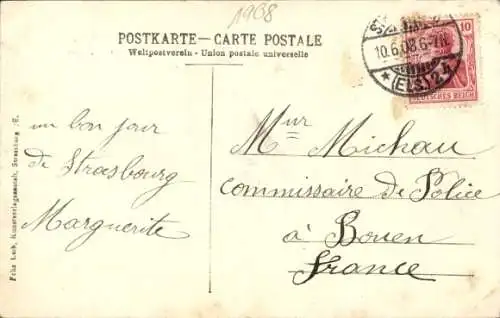 1908
POSTKARTE — CARTE POSTALE
Weltpostverein - Union postale universelle
10.6.08.6-7N.
* (ELS.) 2
10
DEUTSCHES REICH
un bon jour
de Strasbourg
Marguerite
Mur Michau
commissaire de Police
à Bouen
France
Strassburg i/E.